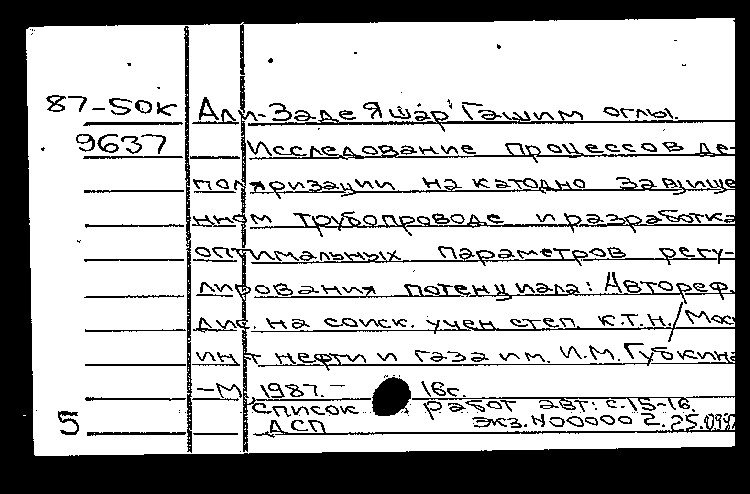 87-50к Али-Заде Яшар Гашим оглы.
9637 Исследование процессов де-
поляризации на катодно защище
нном трубопроводе и разработка
оптимальных параметров регу-
лирования потенциала: Автореф.
дис. на соиск. учен степ. к.т.н. / Мос
ин-т нефти и газа им. И.М. Губкина
-М, 1987. - 16с.
Список работ авт: с.15-16.
ДСП Экз. N00000 2. 25.09
5